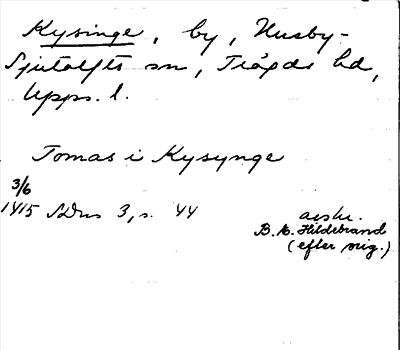 Kysinge, by, Husby-
Sjutolfts sn, Trögds hd,
Upps. l.
Tomas i Kysynge
3/6
1415 SDns 3, s. 44
avskr.
B. E. Hildebrand
(efter orig.)